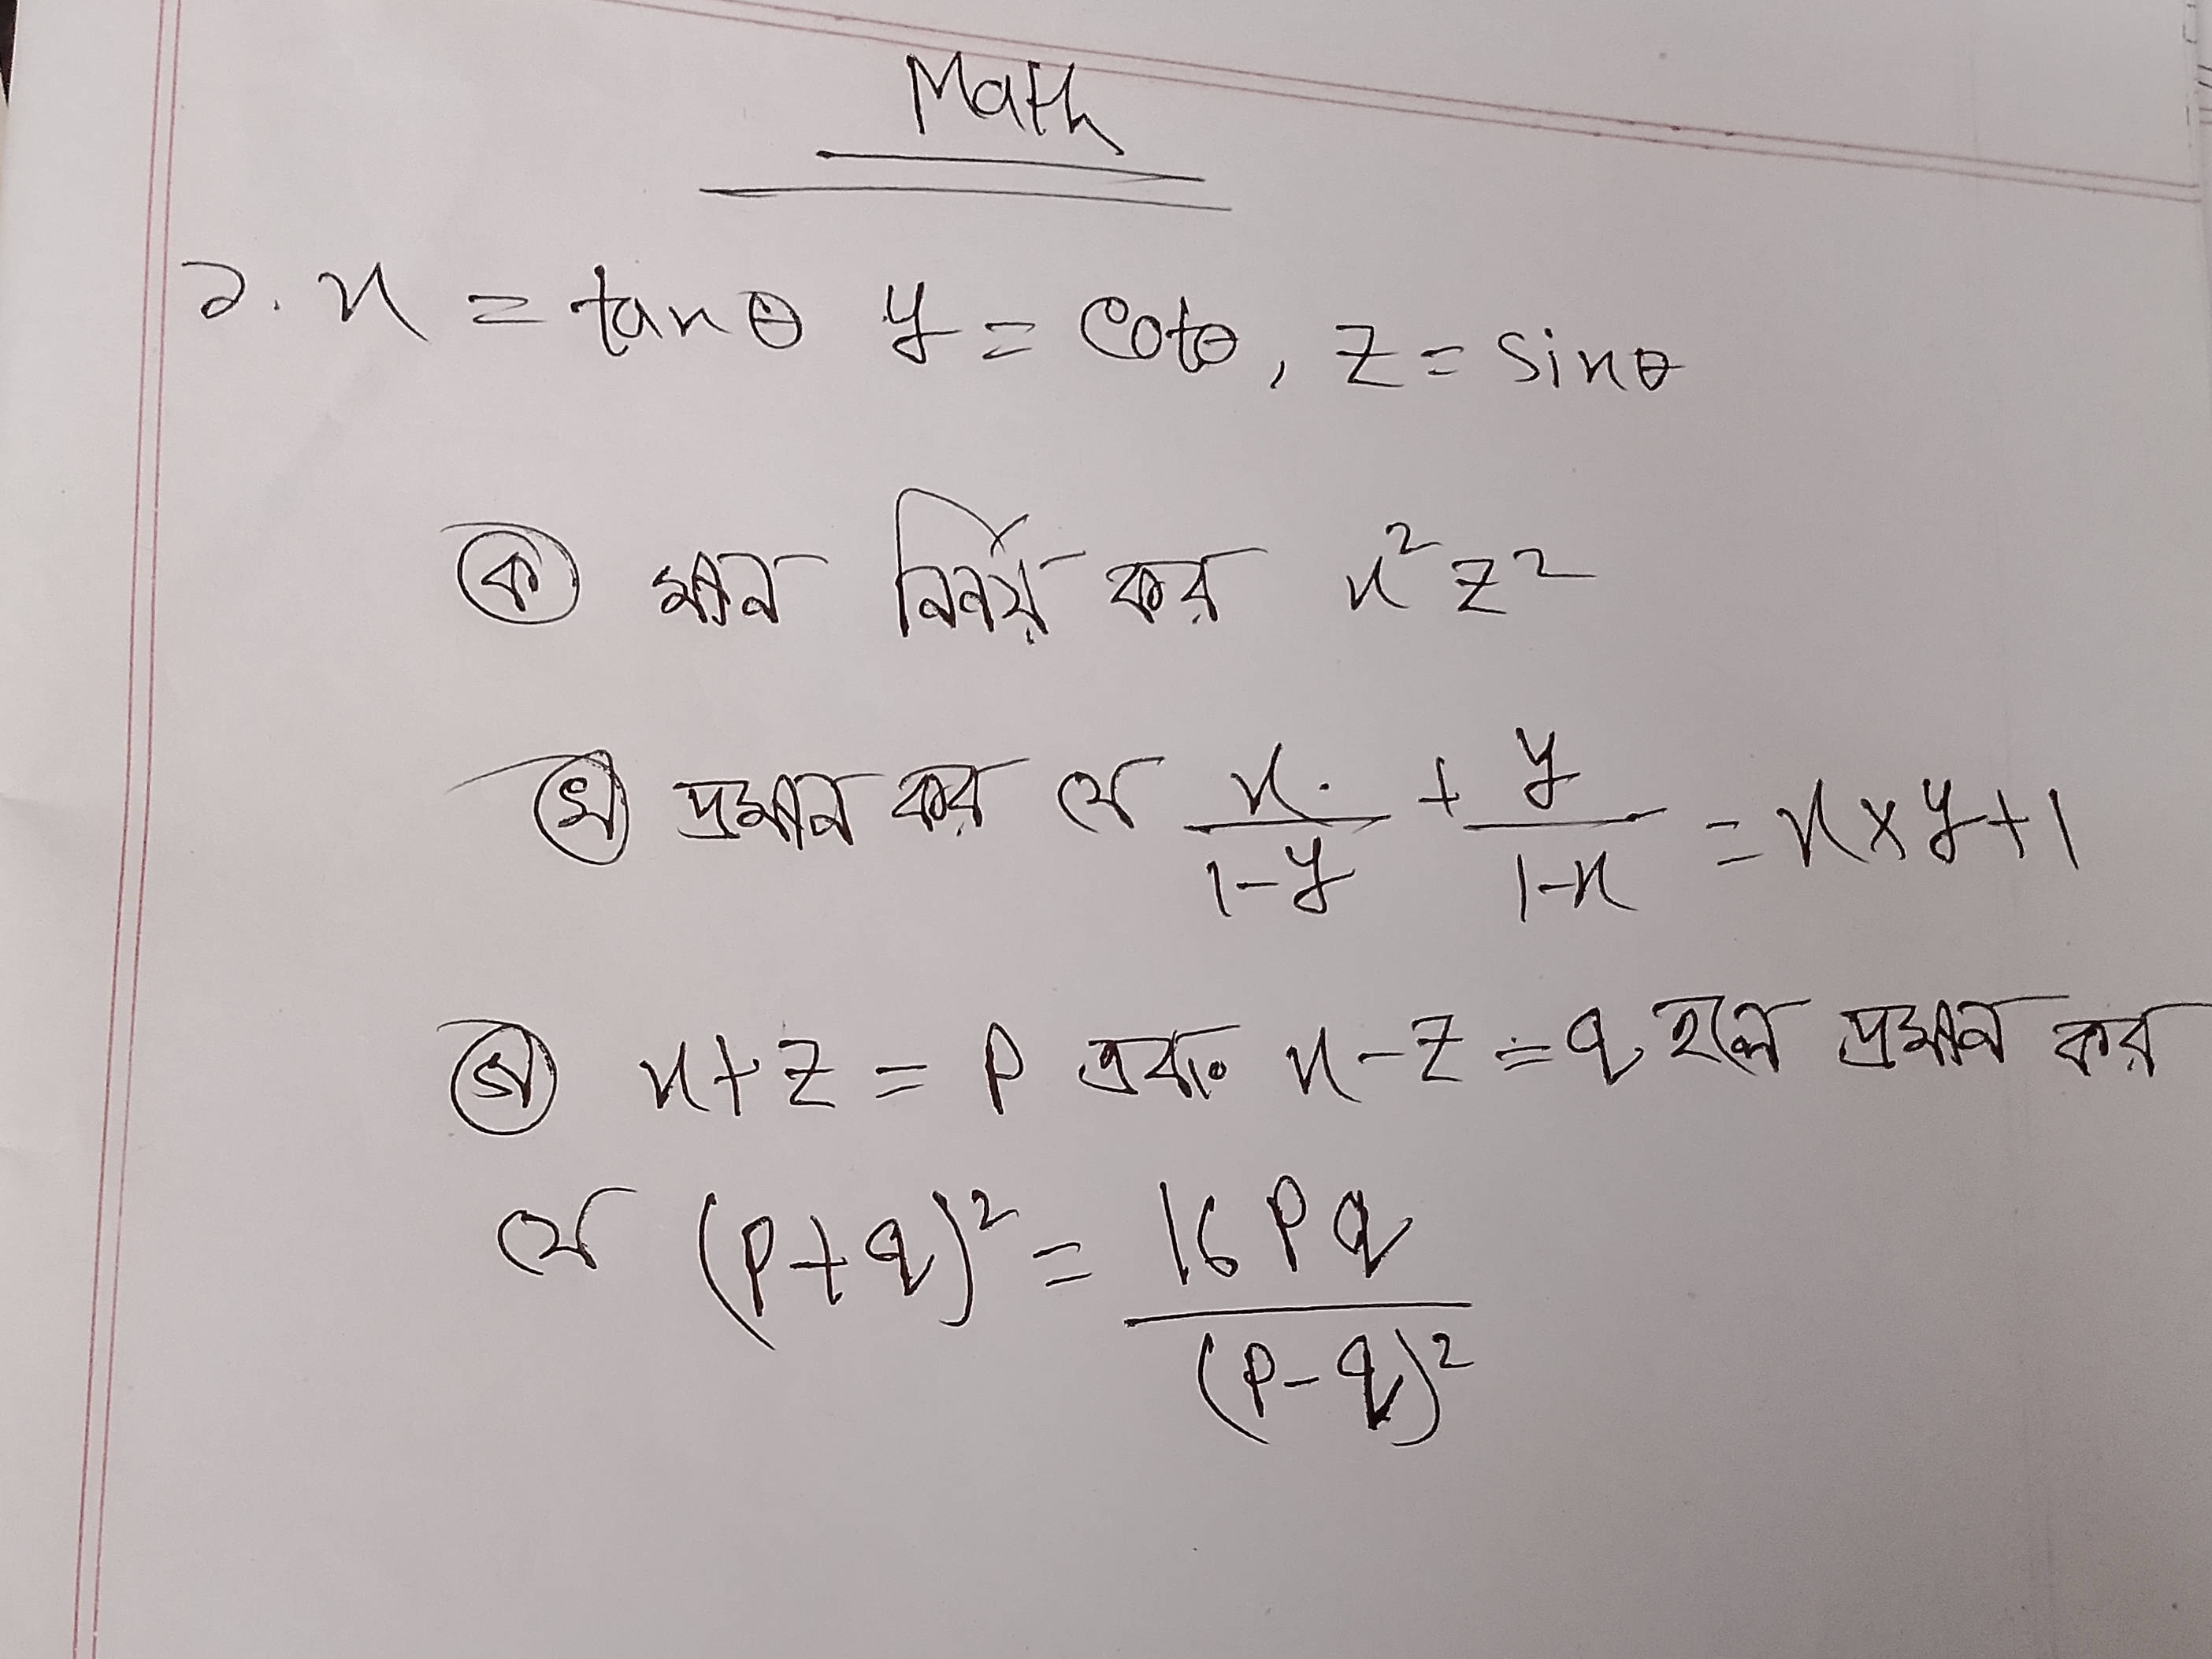 Math
১. x = tanθ y = cotθ, z = sinθ
ক মান নির্নয় কর x² z²
খ প্রমান কর যে x/1-y + y/1-x = x x y + 1
গ x + z = p এবং x - z = q হলে প্রমান কর
যে (p+q)² = 16 p q / (p-q)²